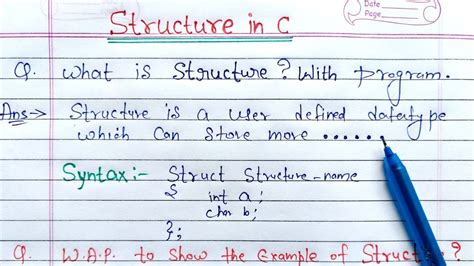 Date
Page
Structure in C
Q. What is Structure? With Program.
Ans:-> Structure is a user defined datatype
which can store more ......
Syntax:- Struct Structure-name
{
int a;
char b;
};
Q. W.A.P. to show the Example of Structure?